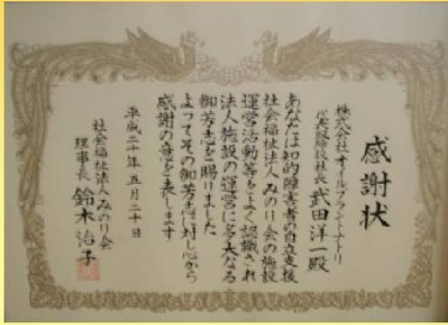 感謝状
株式会社オイルプラントナトリ
代表取締役社長 武田洋一殿
あなたは知的障害者の自立支援
社会福祉法人みのり会の施設
運営活動等をよく認識され
法人施設の運営に多大なる
御芳志を賜りました
よってその御芳志に対し心から
感謝の意を表します
平成二十年五月二十日
社会福祉法人みのり会
理事長 鈴木治子